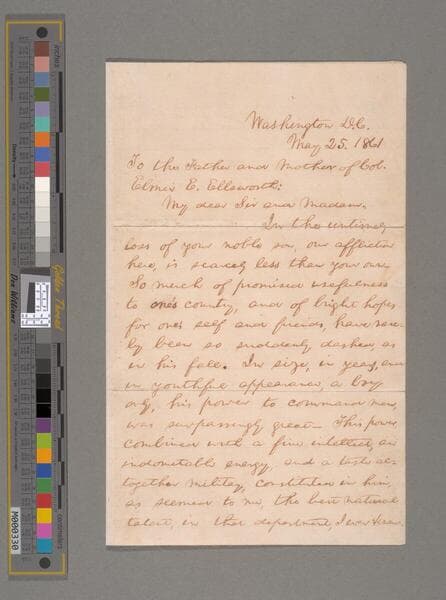 Washington D.C.
May 25. 1861
To the Father and Mother of Col.
Elmer E. Ellsworth:
My dear Sir and Madam,
In the untimely
loss of your noble son, our affliction
here, is scarcely less than your own.
So much of promised usefulness
to one's country, and of bright hopes
for one's self and friends, have rare-
ly been so suddenly dashed, as
in his fall. In size, in years, and
in youthful appearance, a boy
only, his power to command men,
was surpassingly great. This power,
combined with a fine intellect, an
indomitable energy, and a taste al-
together military, constituted in him,
as seemed to me, the best natural
talent, in that department, I ever knew.
inches
Density
Golden Thread
Don Williams
centimeters
M000330